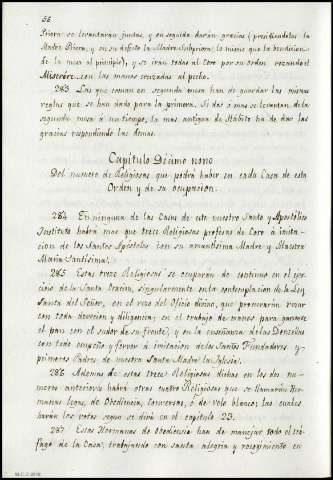 56
Priora se levantarán juntas, y en seguida darán gracias (presidiendolas la
Madre Priora, y en su defecto la Madre Subpriora, lo mismo que la bendicion
de la mesa al principio), y se irán todas al Coro por su orden rezando el
Miserére con las manos cruzadas al pecho.
283 Las que coman en segunda mesa han de guardar las mismas
reglas que se han dado para la primera. Si dos ó mas se levantan de la
segunda mesa á un tiempo, la mas antigua de Hábito ha de dar las
gracias respondiendo las demas.
Capítulo Décimo nono
Del numero de Religiosas que podrá haber en cada Casa de esta
Orden y de su ocupacion.
284 En ninguna de las Casas de este nuestro Santo y Apostólico
Instituto habrá mas que trece Religiosas profesas de Coro á imita-
cion de los Santos Apóstoles con su amantísima Madre y Maestra
María Santísima.
285 Estas trece Religiosas se ocuparán de contínuo en el ejer-
cicio de la Santa Oracion, singularmente en la contemplacion de la Ley
Santa del Señor, en el rezo del Oficio divino, que procurarán rezar
con toda devocion y diligencia; en el trabajo de manos para ganarse
el pan con el sudor de su frente; y en la enseñanza de las Doncellas
con todo empeño y fervor á imitacion de los Santos Fundadores y
primeros Padres de nuestra Santa Madre la Iglesia.
286 Ademas de estas trece Religiosas dichas en los dos nu-
meros anteriores habrá otras cuatro Religiosas que se llamarán Her-
manas legas, de Obediencia, Conversas, ó de velo blanco; las cuales
harán los votos segun se dirá en el capitulo 23.
287 Estas Hermanas de Obediencia han de manejar todo el trá-
fago de la Casa, trabajando con santa alegria y recogimiento en